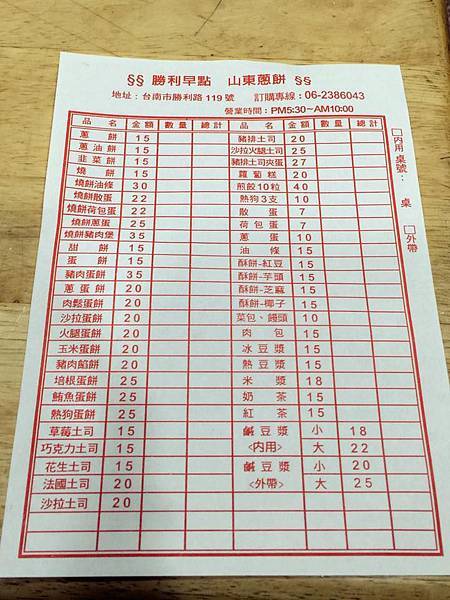 §§ 勝利早點 山東蔥餅 §§
地址：台南市勝利路119號 訂購專線：06-2386043
營業時間：PM5:30~AM10:00
品名 金額 數量 總計 品名 金額 數量 總計
蔥餅 15 豬排土司 20
蔥油餅 15 沙拉火腿土司 25
韭菜餅 15 豬排土司夾蛋 27
燒餅 15 蘿蔔糕 20
燒餅油條 30 煎餃10粒 40
燒餅散蛋 22 熱狗3支 10
燒餅荷包蛋 22 散蛋 7
燒餅蔥蛋 25 荷包蛋 7
燒餅豬肉堡 35 蔥蛋 10
甜餅 15 油條 15
蛋餅 15 酥餅-紅豆 15
豬肉蛋餅 35 酥餅-芋頭 15
蔥蛋餅 20 酥餅-芝麻 15
肉鬆蛋餅 20 酥餅-椰子 15
沙拉蛋餅 20 菜包、饅頭 10
火腿蛋餅 20 肉包 15
玉米蛋餅 20 冰豆漿 15
豬肉餡餅 20 熱豆漿 15
培根蛋餅 25 米漿 18
鮪魚蛋餅 25 奶茶 15
熱狗蛋餅 25 紅茶 15
草莓土司 15 鹹豆漿 小 18
巧克力土司 15 <內用> 大 22
花生土司 15 鹹豆漿 小 20
法國土司 20 <外帶> 大 25
沙拉土司 20
□內用 桌號： 桌
□外帶